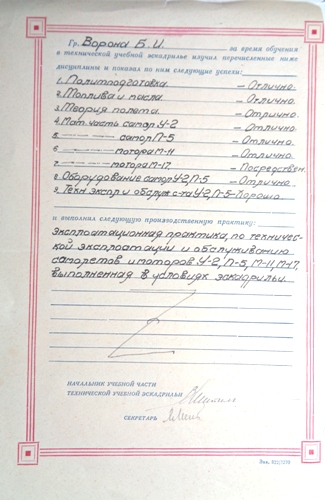 Гр. Ворона Б. И. за время обучения
в технической учебной эскадрилье изучил перечисленные ниже
дисциплины и показал по ним следующие успехи:
1. Политподготовка. — Отлично.
2. Топлива и масла. — Отлично.
3. Теория полета. — Отлично.
4. Мат. часть самол У-2 — Отлично.
5. ——— самол П-5 — Отлично.
6. ——— мотора М-11 — Отлично.
7. ——— мотора М-17. — Посредствен.
8. Оборудование самол У-2, П-5 — Отлично.
9. Техн экспл и обслуж с-та У-2, П-5 — Хорошо.
и выполнил следующую производственную практику:
Эксплоатационная практика, по техничес-
кой эксплоатации и обслуживанию
самолетов и моторов У-2, П-5, М-11, М-17,
выполненная в условиях эскадрильи.
НАЧАЛЬНИК УЧЕБНОЙ ЧАСТИ
ТЕХНИЧЕСКОЙ УЧЕБНОЙ ЭСКАДРИЛЬИ
СЕКРЕТАРЬ